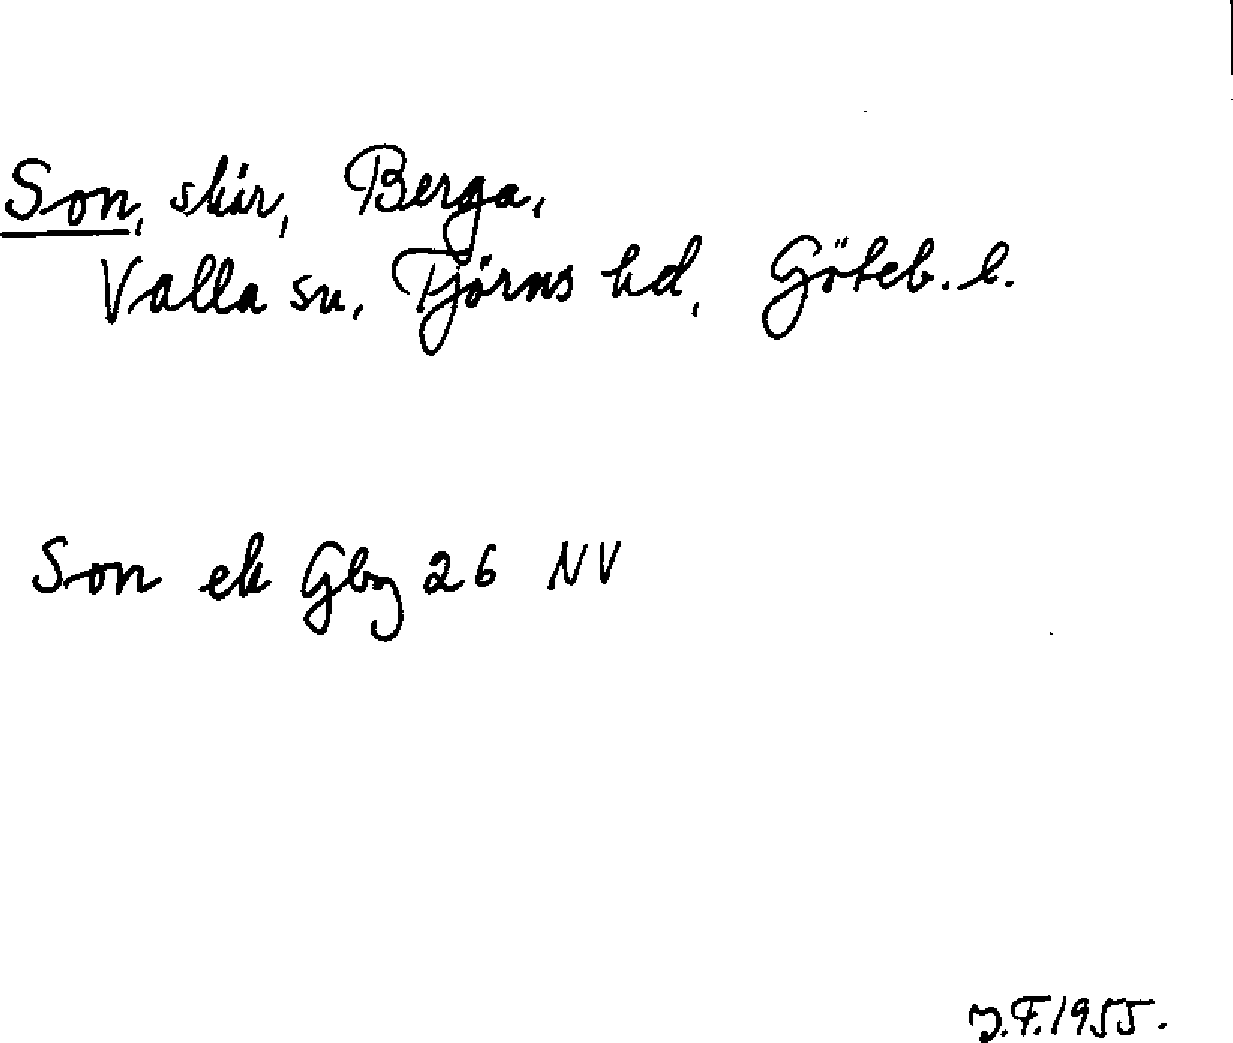 Son, skär, Berga,
Valla sn, Tjörns hd, Göteb. l.
Son ek Gbg 26 NV
J.F. 1955.